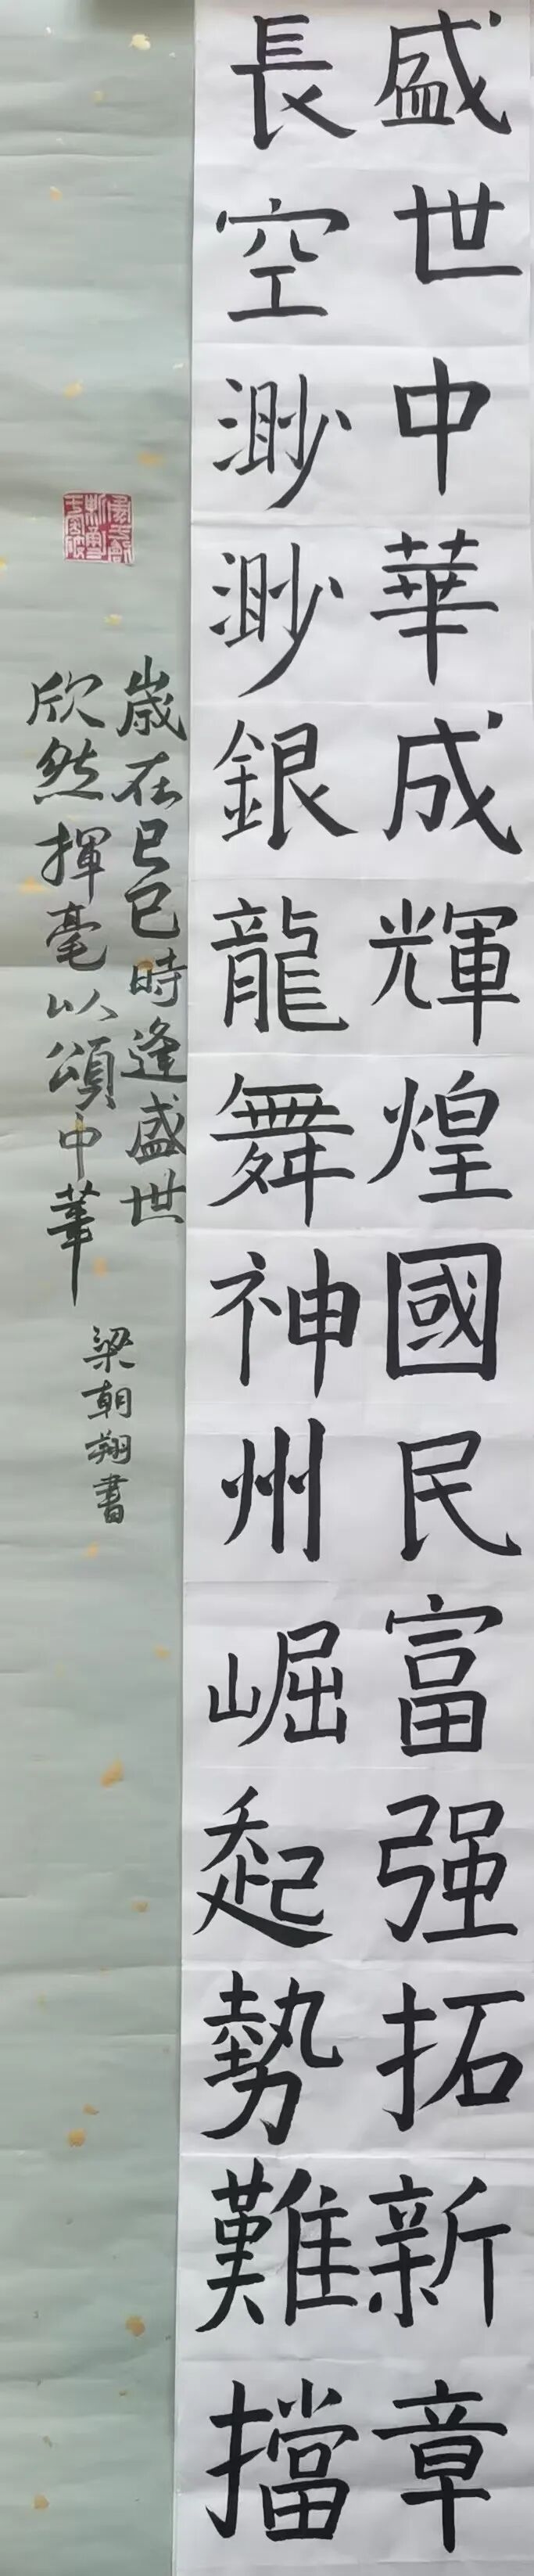 盛世中華成輝煌國民富强拓新章
長空渺渺銀龍舞神州崛起勢難擋
歲在已已時逢盛世
欣然揮毫以頌中華
梁朝翔書